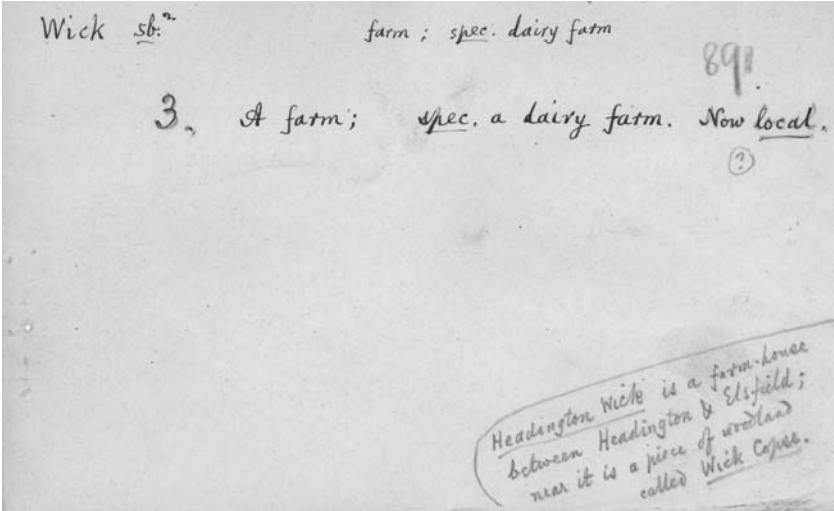 Wick sb.² farm ; spec. dairy farm
891.
3. A farm; spec. a dairy farm. Now local.
(?)
Headington Wick is a farm-house
between Headington & Elsfield;
near it is a piece of woodland
called Wick Copse.